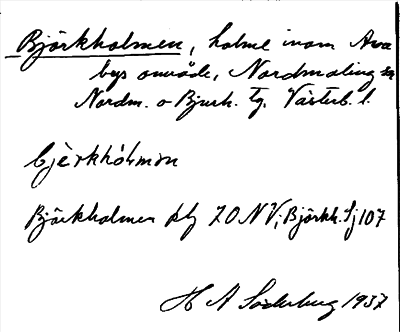 Björkholmen, holme inom Ava
bys område, Nordmaling sn
Nordm. o Bjurh. tg. Västerb. l.
bjèrkhólmɘn
Björkholmen plg 70 NV; Björkh. Sj 107
H A Söderberg 1937